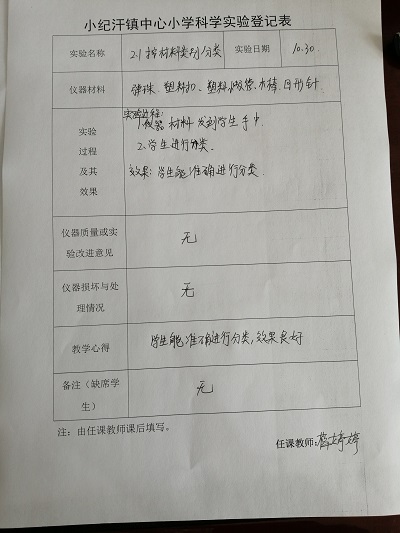 小纪汗镇中心小学科学实验登记表
实验名称 2.1 按材料类别分类 实验日期 10.30.
仪器材料 弹珠、塑料扣、塑料吸管、木棒、回形针
实验
过程
及其
效果
实验过程:
1.仪器材料发到学生手中
2.学生进行分类.
效果:学生能准确进行分类.
仪器质量或实
验改进意见
无
仪器损坏与处
理情况
无
教学心得 学生能准确进行分类,效果良好
备注(缺席学
生)
无
注:由任课教师课后填写。
任课教师: